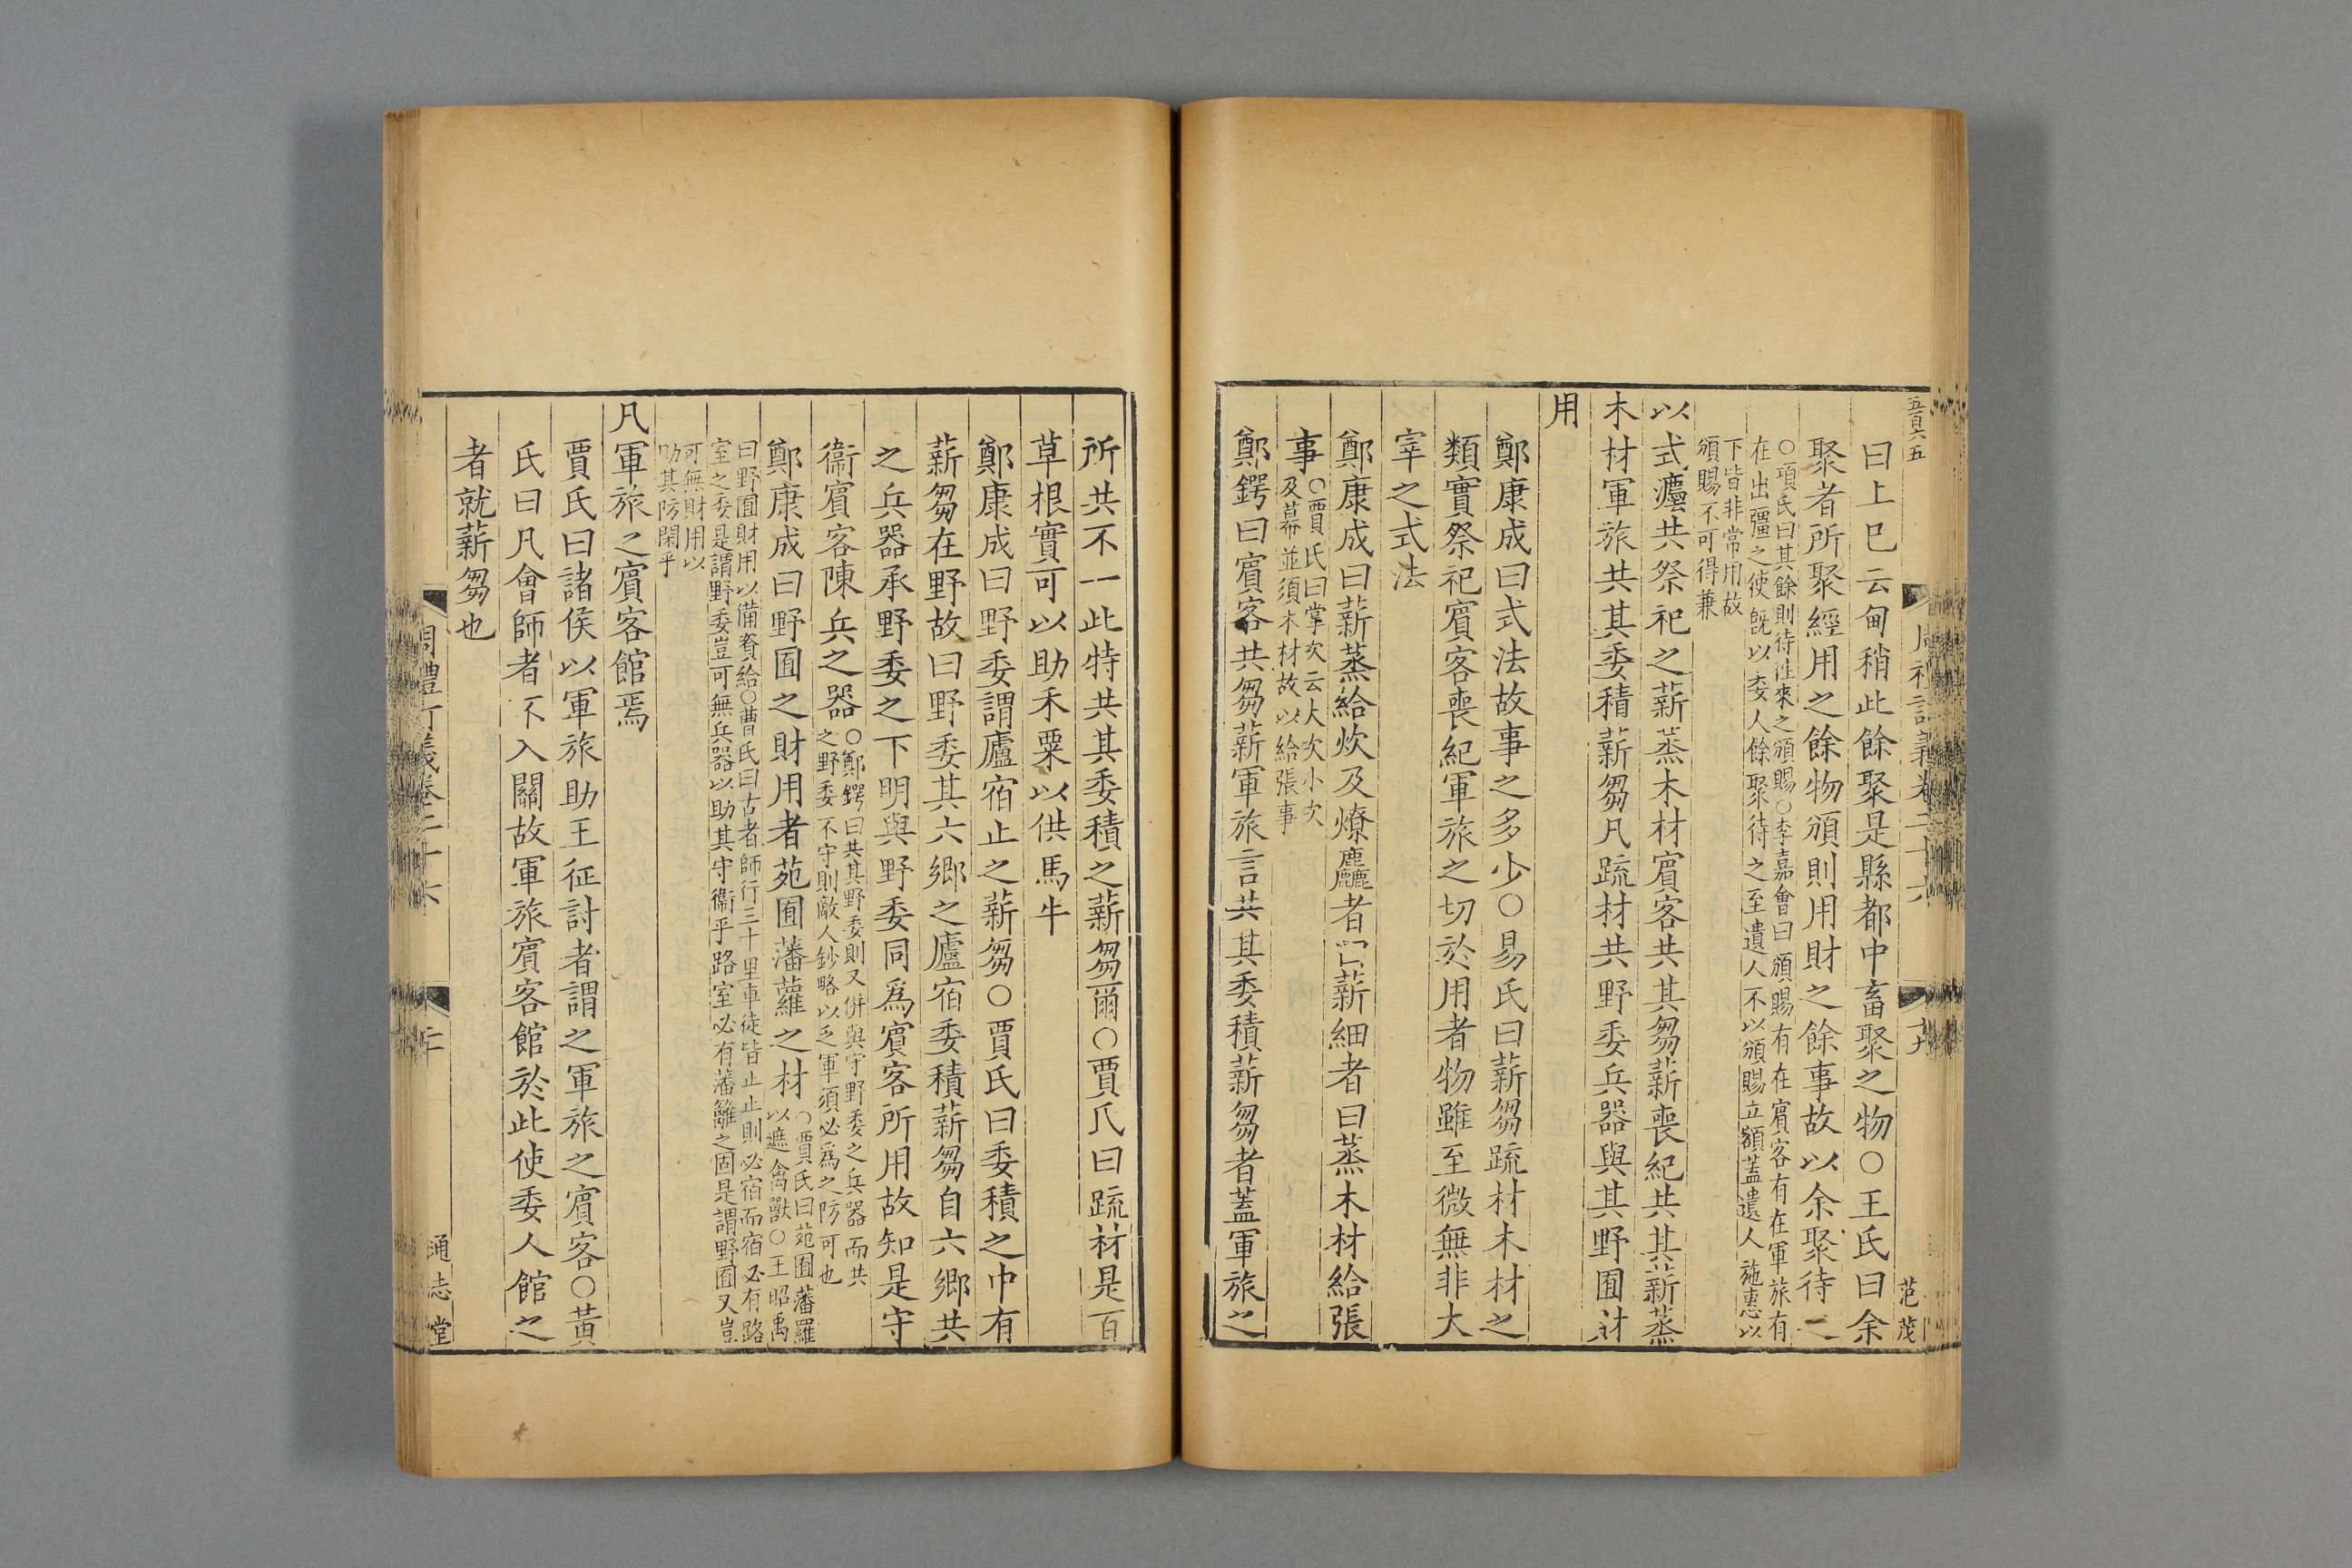 五百六五
曰上已云甸稍此餘聚是縣都中畜聚之物○王氏曰余
聚者所聚經用之餘物頒則用財之餘事故以余聚待之
○項氏曰其餘則待往來之頒賜○李嘉會曰頒賜有在賓客有在軍旅有
在出疆之使既以委人餘聚待之至遺人不以頒賜立額蓋遺人施惠以
下皆非常用故
頒賜不可得兼
以式灋共祭祀之薪蒸木材賓客共其芻薪喪紀共其薪蒸
木材軍旅共其委積薪芻凡疏材共野委兵器與其野囿財
用
鄭康成曰式法故事之多少○易氏曰薪芻疏材木材之
類實祭祀賓客喪紀軍旅之切於用者物雖至微無非大
宰之式法
鄭康成曰薪蒸給炊及燎麤者曰薪細者曰蒸木材給張
事○賈氏曰掌次云大次小次
及幕並須木材故以給張事
鄭鍔曰賓客共芻薪軍旅言共其委積薪芻者蓋軍旅之
周禮訂義卷二十六
十九
范茂
所共不一此特共其委積之薪芻爾○賈氏曰疏材是百
草根實可以助禾粟以供馬牛
鄭康成曰野委謂廬宿止之薪芻○賈氏曰委積之中有
薪芻在野故曰野委其六鄉之廬宿委積薪芻自六鄉共
之兵器承野委之下明與野委同爲賓客所用故知是守
衞賓客陳兵之器○鄭鍔曰共其野委則又併與守野委之兵器而共
之野委不守則敵人鈔略以乏軍須必爲之防可也
鄭康成曰野囿之財用者苑囿藩蘿之材○賈氏曰苑囿藩羅
以遮禽獸○王昭禹
曰野囿財用以備賚給○曹氏曰古者師行三十里車徒皆止止則必宿而宿必有路
室之委是謂野委豈可無兵器以助其守衞乎路室必有藩籬之固是謂野囿又豈
可無財用以
助其防閑乎
凡軍旅之賓客館焉
賈氏曰諸侯以軍旅助王征討者謂之軍旅之賓客○黃
氏曰凡會師者不入關故軍旅賓客館於此使委人館之
者就薪芻也
周禮訂義卷二十六
二十
通志堂